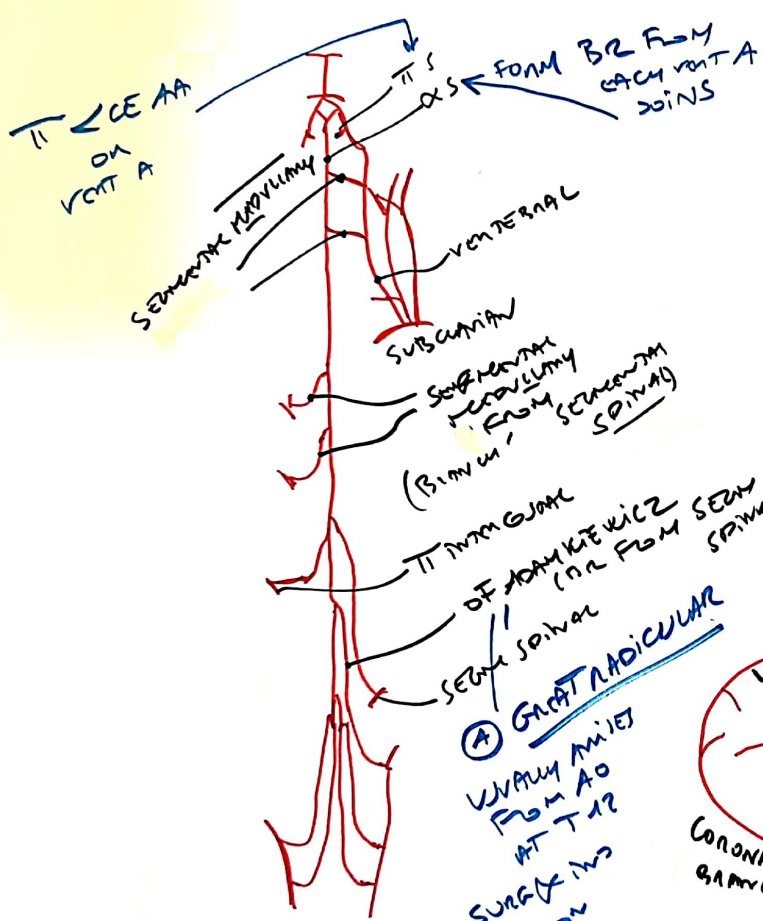 π S
α S
FORM BR FROM
EACH VERT A
JOINS
π < CE AA
OR
VERT A
SEGMENTAL MEDULLARY
VERTEBRAL
SUBCLAVIAN
SEGMENTAL
MEDULLARY
FROM
(BRANCH, SEGMENTAL
SPINAL)
π INTERCOSTAL
OF ADAMKIEWICZ
(BR FROM SEGM
SPINA
SEGM SPINAL
A GREAT RADICULAR
USUALLY ARISES
FROM AO
AT T12
SURG
ON
CORONA
BRANC